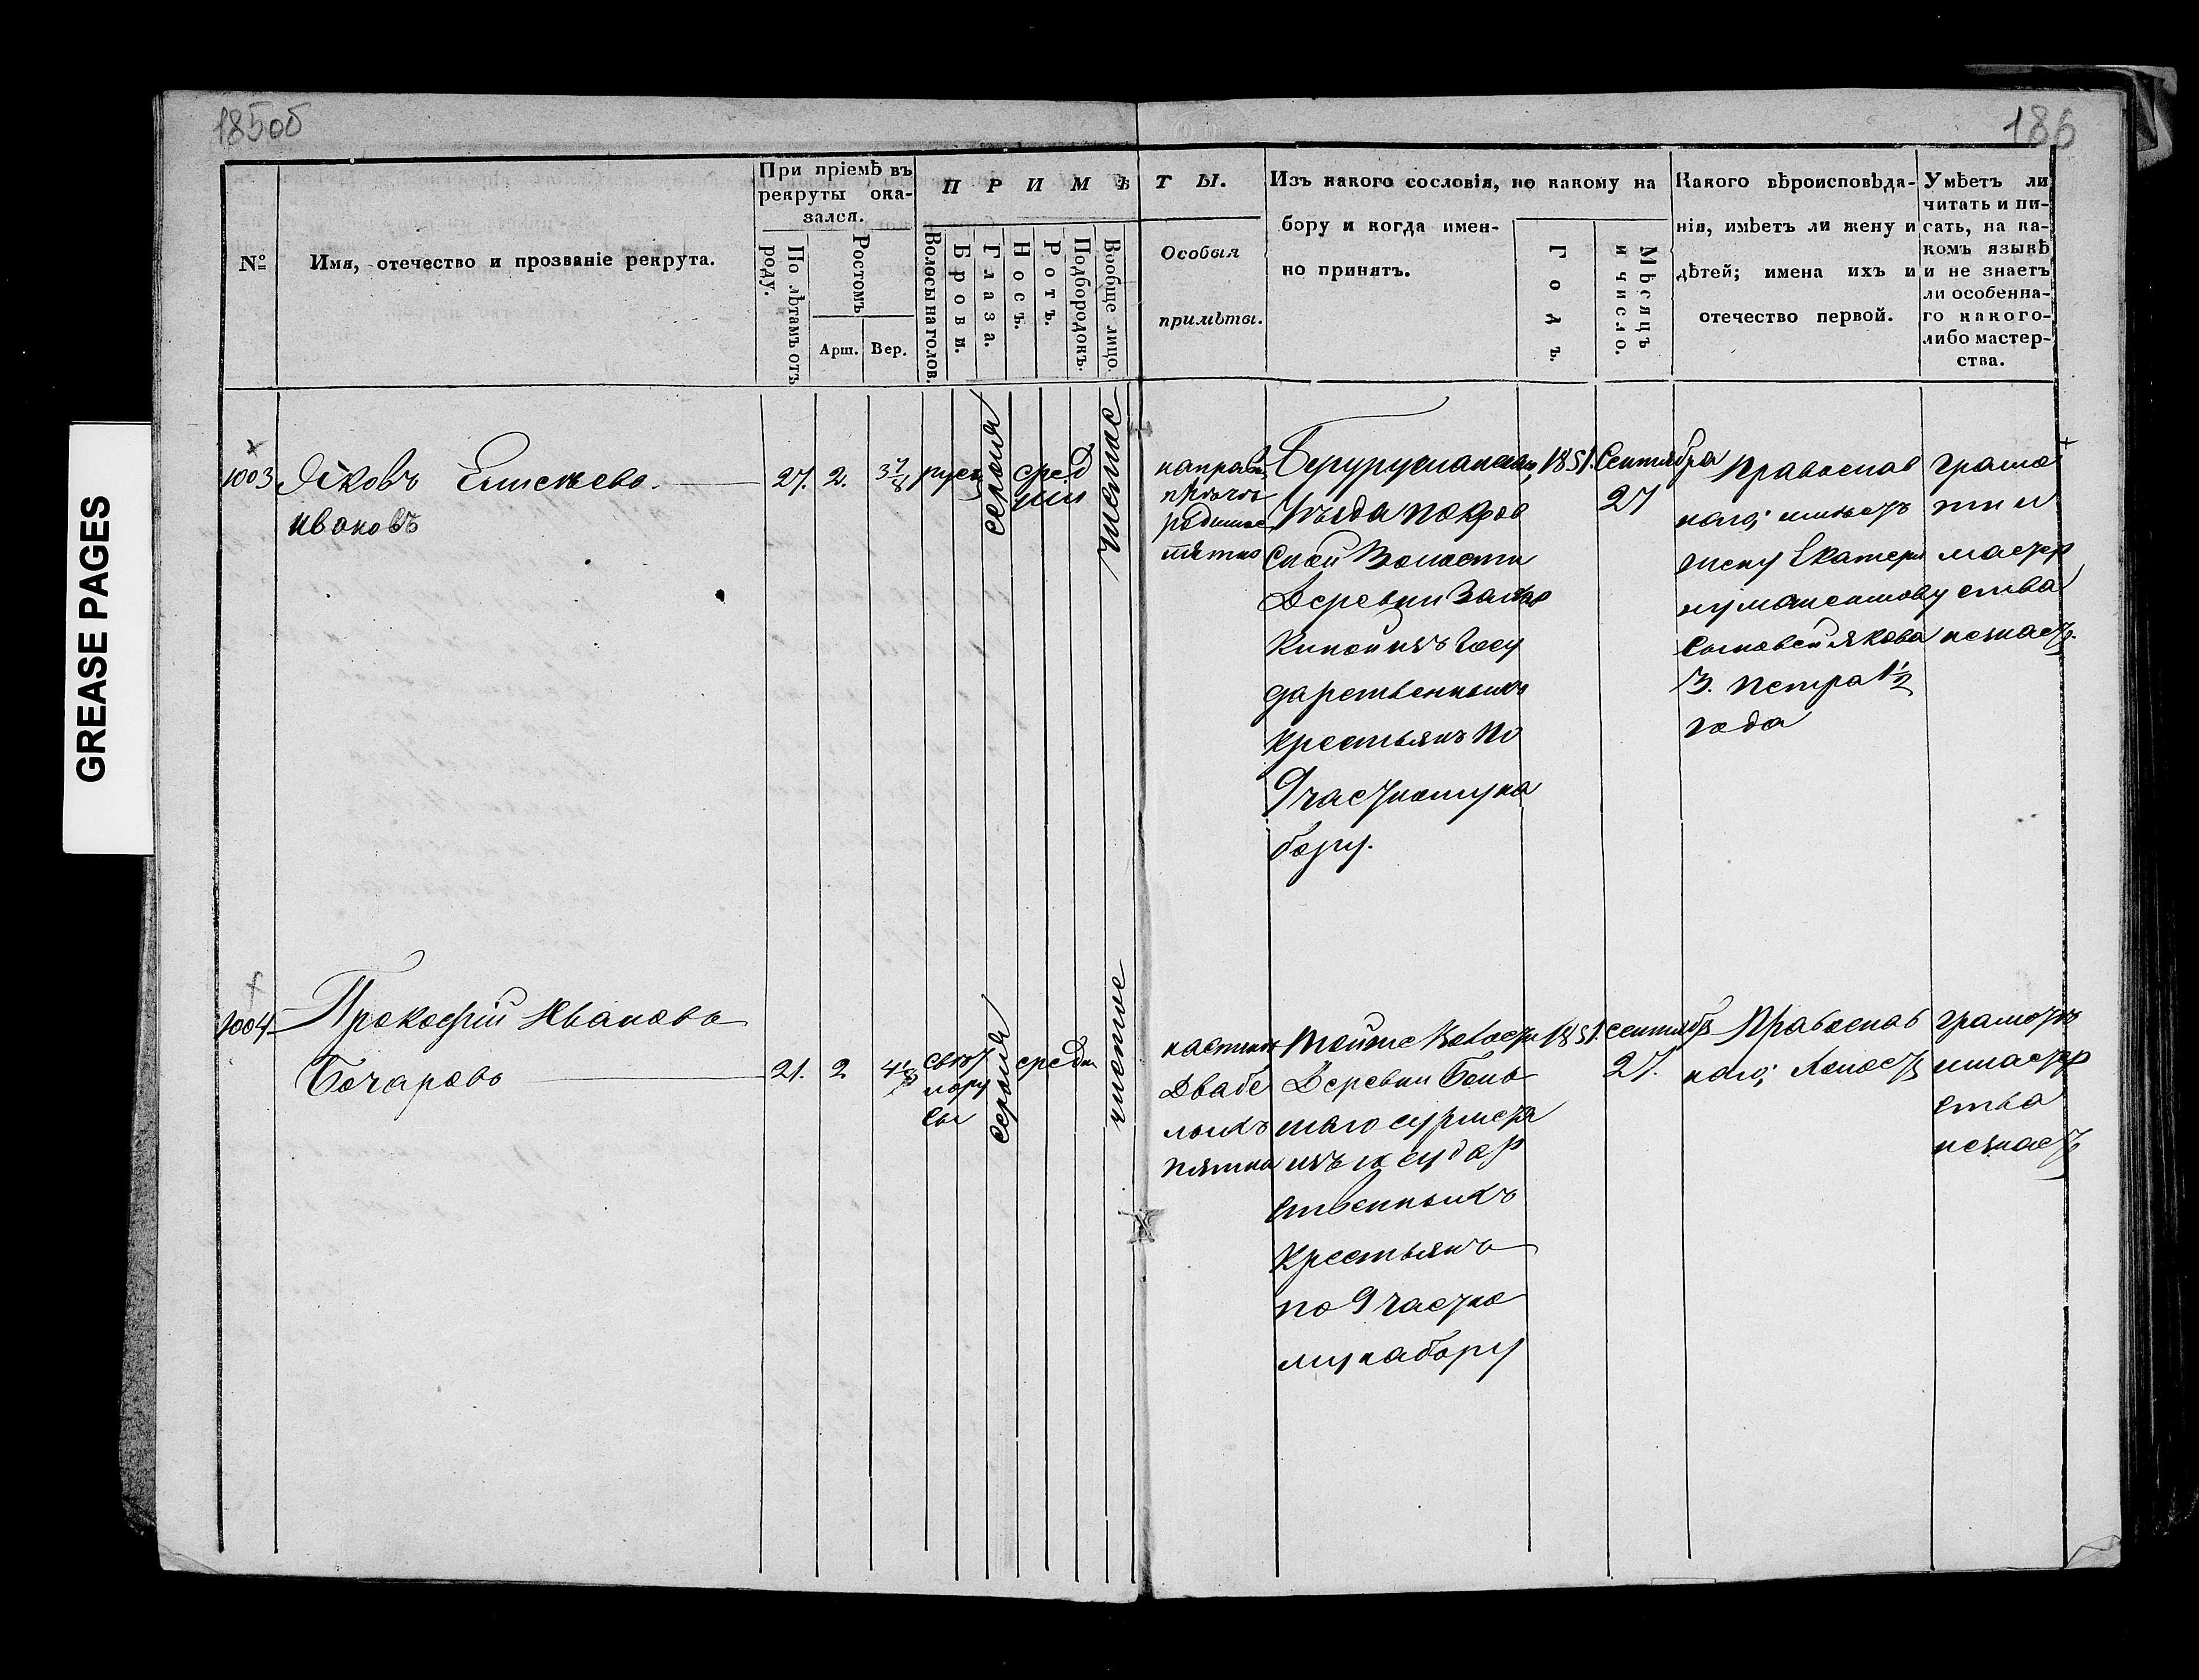 185об
186
GREASE PAGES
№
Имя, отечество и прозваніе рекрута.
При пріемѣ въ
рекруты ока-
зался.
По лѣтамъ отъ
роду.
Ростомъ
Арш.
Вер.
ПРИМѢ
ТЫ.
Волосы на голов.
Брови.
Глаза.
Носъ.
Ротъ.
Подбородокъ.
Вообще лицо.
Особыя
примѣты.
Изъ какого сословія, по какому на
бору и когда имен-
но принятъ.
Годъ.
Мѣсяцъ
и число.
Какого вѣроисповѣда-
нія, имѣетъ ли жену и
дѣтей; имена ихъ и
отечество первой.
Умѣетъ ли
читать и пи-
сать, на ка-
комъ языкѣ
и не знаетъ
ли особенна-
го какого-
либо мастер-
ства.
1003
Яковъ Елисеевъ
Ивановъ
27.
2.
3 7/8
русы
серыя
сред
нии
чистое
направой
родимое
пятно
Бугурусланскаго
Уѣзда Покров
ской Волости
Деревни
изъ Госу
дарственныхъ
Крестьянъ по
9 частному на
бору.
1851.
Сентября
27
Православ
наго; имѣетъ
жену Екатери
ну
Сыновей Якова
3. Петра 1 1/2
года
грамо
ти и
мастер
ства
незнаетъ.
1004
Прокофій Ивановъ
Бочаровъ
21.
2
4
светло
русы
серыя
средн
чистое
наспине
Два бе
лыхъ
пятна
Тойже Волости
Деревни Боль
шаго Сурмета
изъ государ
ственныхъ
Крестьянъ
по 9 частно
му набору
1851.
Сентябр
27.
Православ
наго; Холостъ
грамоты
и мастер
ства
незнаетъ